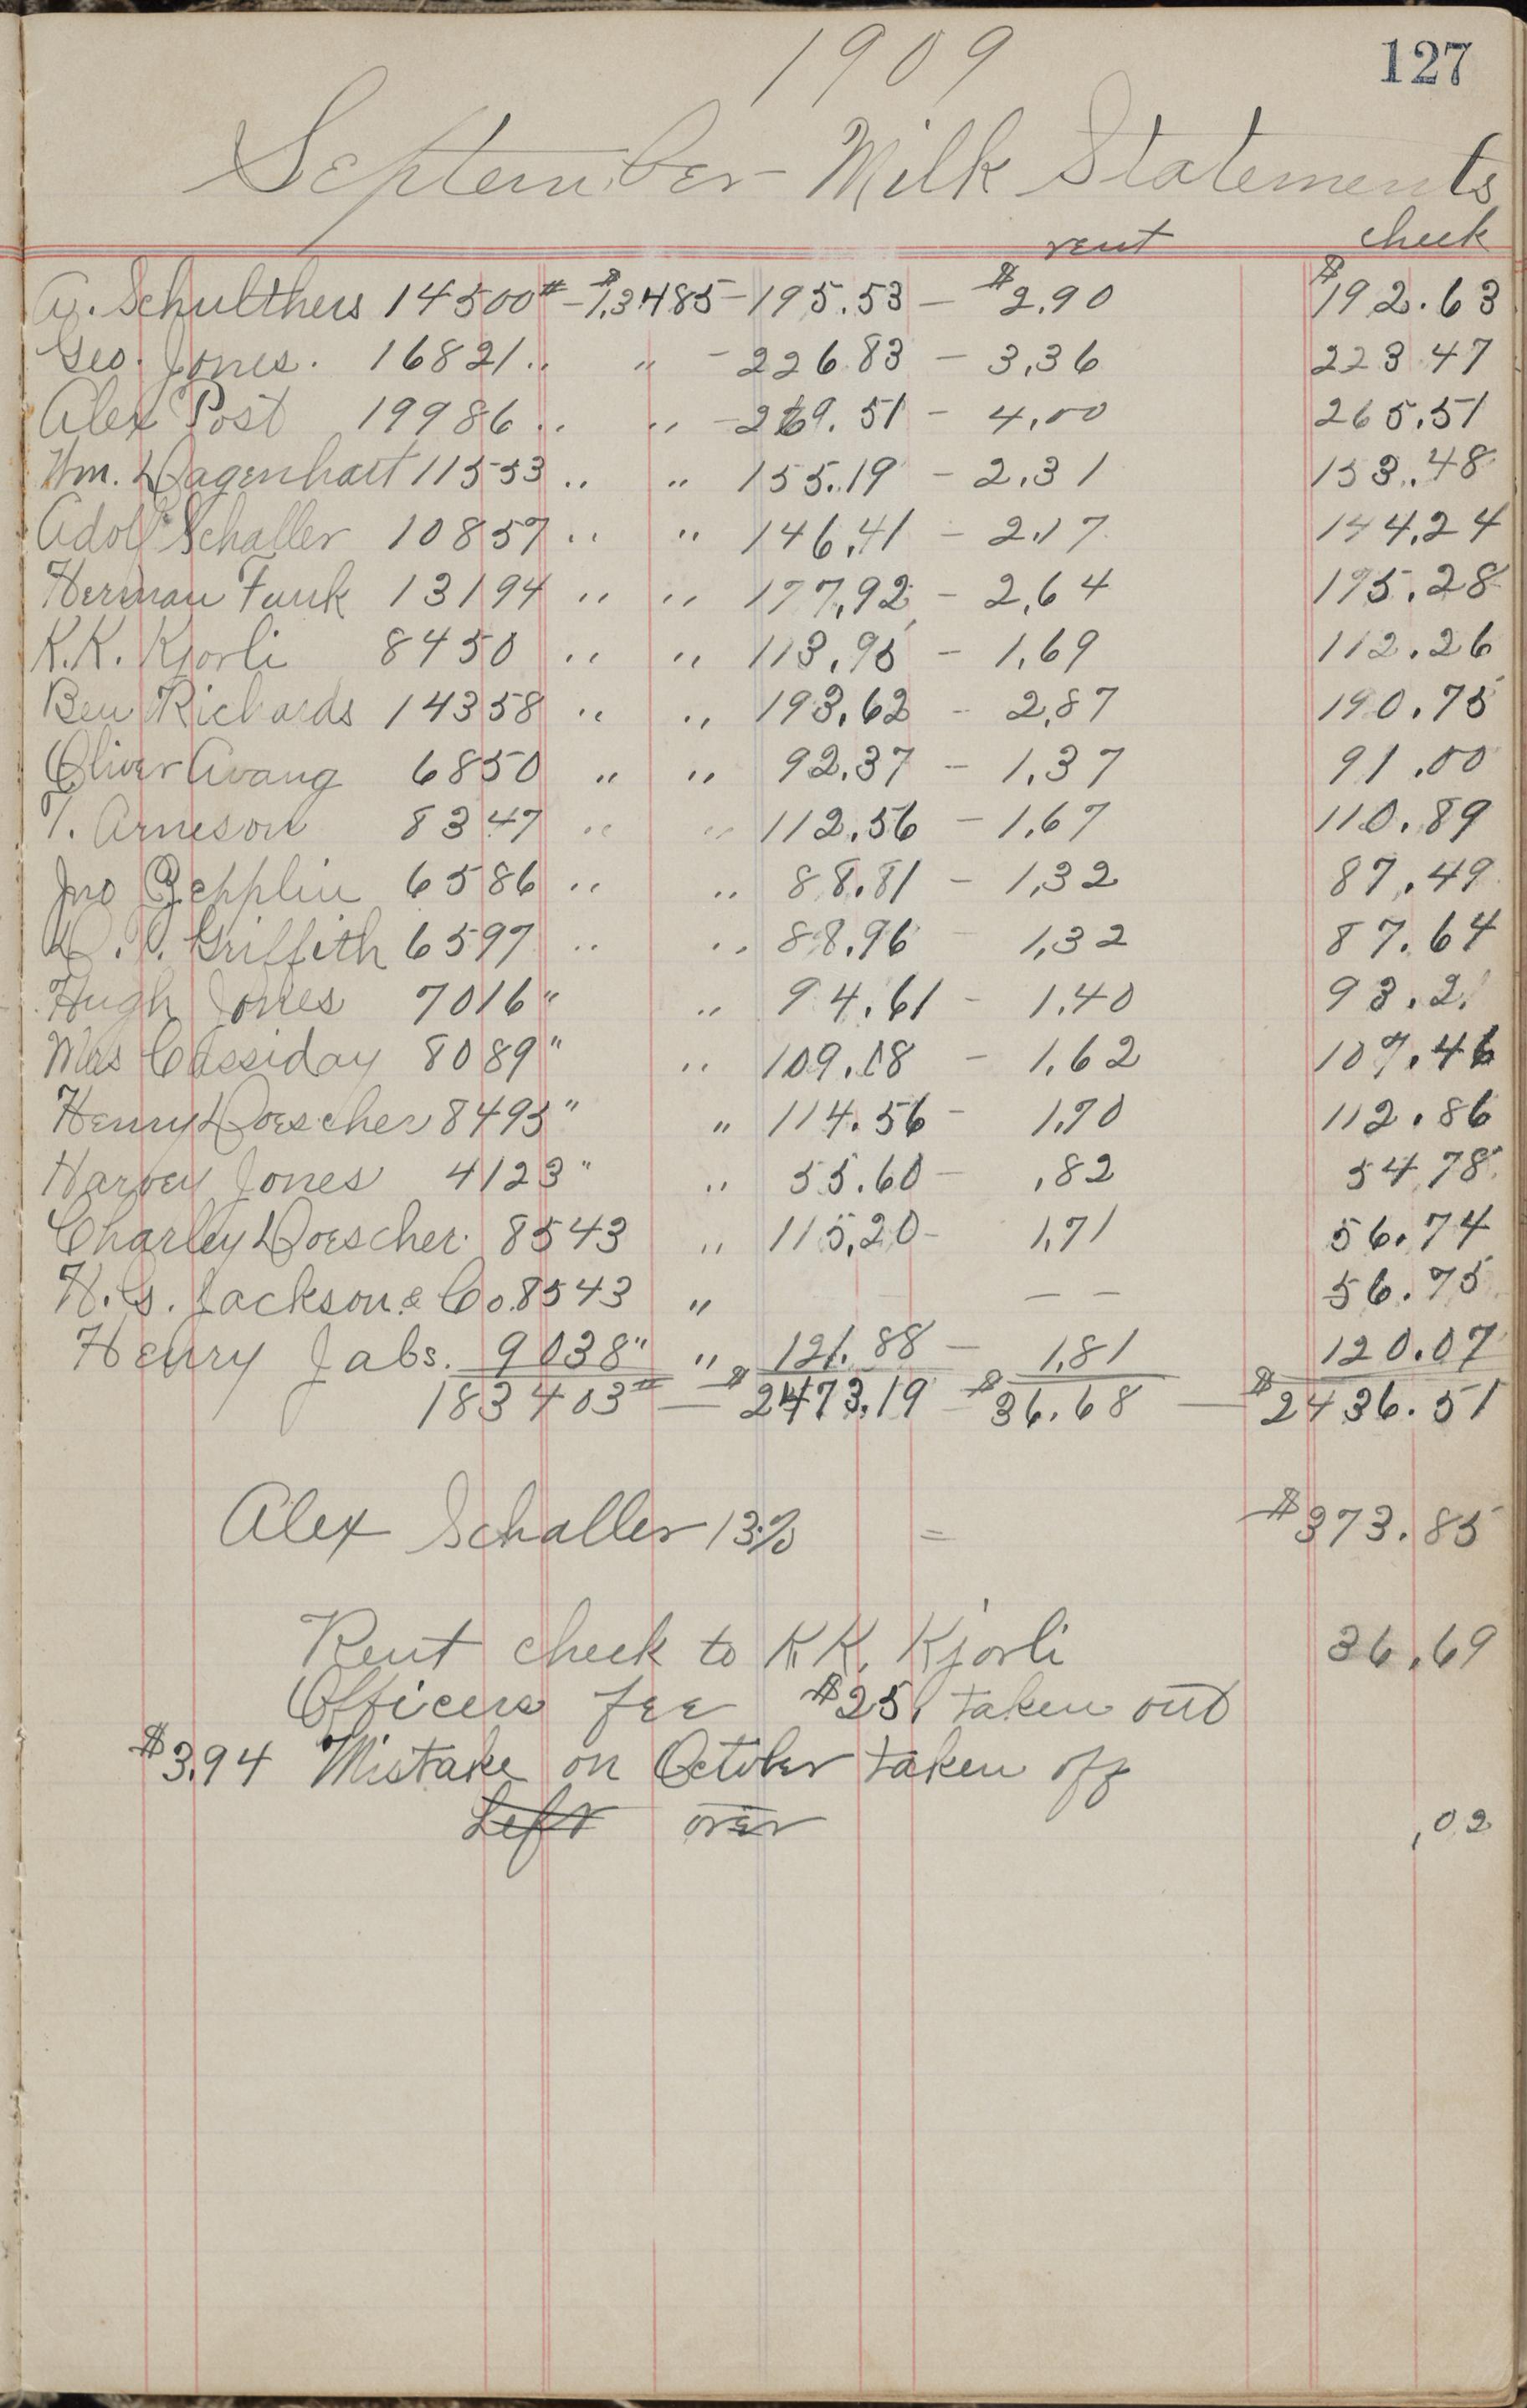 1909
127
September Milk Statements
rent check
A. Schulthers 14500# - $1,3485 - 195.53 - $2.90 $192.63
Geo. Jones. 16821 " " - 226.83 - 3,36 223 47
Alex Post 19986 " " - 269.51 - 4,00 265.51
Wm. Dagenhart 11553 " " 155.19 - 2.31 153.48
Adolf Schaller 10857 " " 146,41 - 2,17 144,24
Herman Funk 13194 " " 177,92 - 2,64 175.28
K.K. Kjorli 8450 " " 113,95 - 1,69 112.26
Ben Richards 14358 " " 193,62 - 2,87 190.75
Oliver Avang 6850 " " 92.37 - 1,37 91.00
T. Arneson 8347 " " 112.56 - 1,67 110.89
Jno Zepplin 6586 " " 88.81 - 1,32 87.49
Griffith 6597 " " 88.96 - 1,32 87.64
Hugh Jones 7016 " " 94.61 - 1.40 93.21
Mrs Cassiday 8089 " " 109.08 - 1,62 107.46
Henry Doescher 8495 " " 114.56 - 1,70 112.86
Harvey Jones 4123 " " 55.60 - ,82 54 78
Charley Doescher. 8543 " 115,20 - 1,71 56.74
H.G. Jackson & Co. 8543 " - - 56.75
Henry Jabs. 9038 " " 121.88 - 1,81 120.07
183403# - $2473.19 - $36.68 - $2436.51
Alex Schaller 13% = $373.85
Rent check to K.K. Kjorli 36.69
Officers fee $25. taken out
$3.94 Mistake on October taken off
Left over ,02